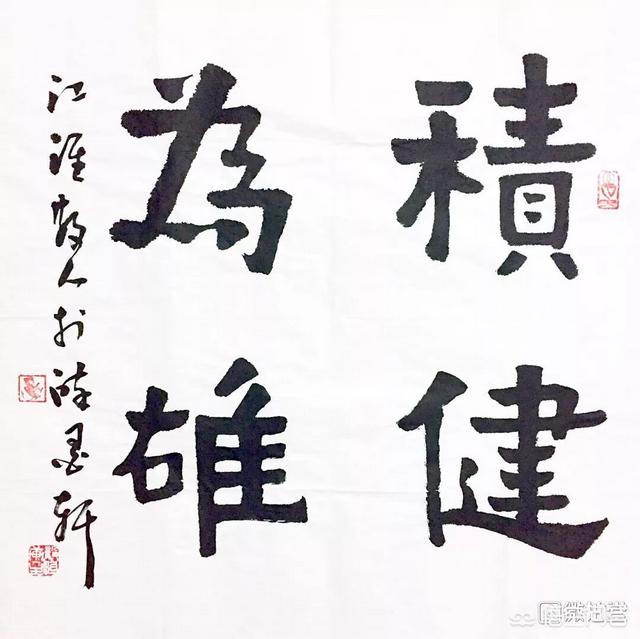 積健
為雄
江淮散人於墨軒